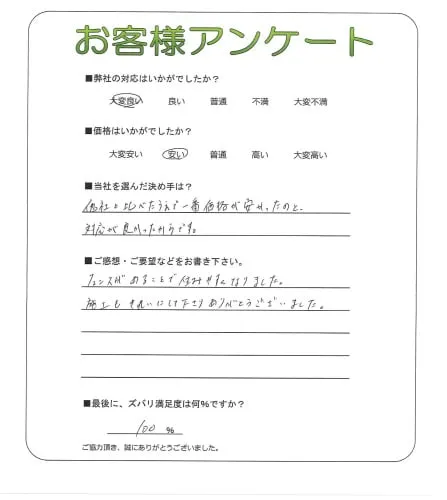 お客様アンケート
■弊社の対応はいかがでしたか？
大変良い 良い 普通 不満 大変不満
■価格はいかがでしたか？
大変安い 安い 普通 高い 大変高い
■当社を選んだ決め手は？
他社と比べたうえで一番価格が安かったのと、
対応が良かったからです。
■ご感想・ご要望などをお書き下さい。
フェンスがあることで住みやすくなりました。
施工もきれいにして下さりありがとうございました。
■最後に、ズバリ満足度は何％ですか？
100 %
ご協力頂き、誠にありがとうございました。